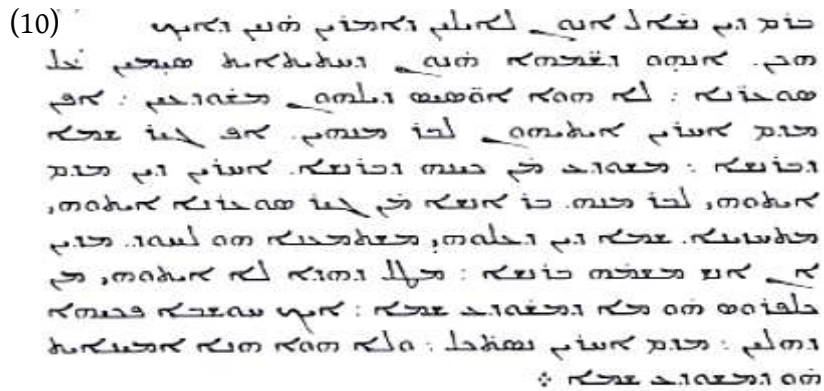 (10) ܒܪܡ ܕܝܢ ܢܫܐܠ ܐܢܘܢ ܠܐܝܠܝܢ ܕܐܡܪܝܢ ܗܟܢ ܕܐܝܟ
ܗܟܢ. ܐܢܗܘ ܕܫܡ̈ܗܐ ܗܢܘܢ ܕܚܬܝܬܐܝܬ ܣܝܡܝܢ ܥܠ
ܣܘܥܪܢܐ : ܠܐ ܗܘܐ ܐܘ̈ܣܝܣ ܕܝܠܗܘܢ ܡܫܘܕܥܝܢ : ܐܦܢ
ܡܕܡ ܐܚܪܝܢ ܐܝܬܝܗܘܢ ܠܒܪ ܡܢܗܝܢ. ܐܦ ܓܝܪ ܫܡܐ
ܕܒܪܢܫܐ : ܡܫܘܕܥ ܡܢ ܟܝܢܗ ܕܒܪܢܫܐ. ܐܚܪܝܢ ܕܝܢ ܡܕܡ
ܐܝܬܘܗܝ, ܠܒܪ ܡܢܗ. ܒܪ ܐܢܫܐ ܡܢ ܓܝܪ ܣܘܥܪܢܐ ܐܝܬܘܗܝ
ܡܬܚܙܝܢܐ. ܫܡܐ ܕܝܢ ܕܥܠܘܗܝ ܡܫܬܡܥܢܐ ܗܘ ܠܚܘܕ. ܡܕܝܢ
ܐܢ ܐܢܫ ܡܫܡܗ ܒܪܢܫܐ : ܡܛܠ ܕܗܘܐ ܠܐ ܐܝܬܘܗܝ ܡܢ
ܗܘ ܡܐ ܕܡܫܘܕܥ ܫܡܐ : ܐܝܟ
ܕܗܠܝܢ : ܡܕܡ ܐܚܪܝܢ ܢܣܬܟܠ : ܘܠܐ ܗܘܐ ܗܢܐ ܐܡܝܢܐܝܬ
ܗܘ ܕܡܫܘܕܥ ܫܡܐ ܀